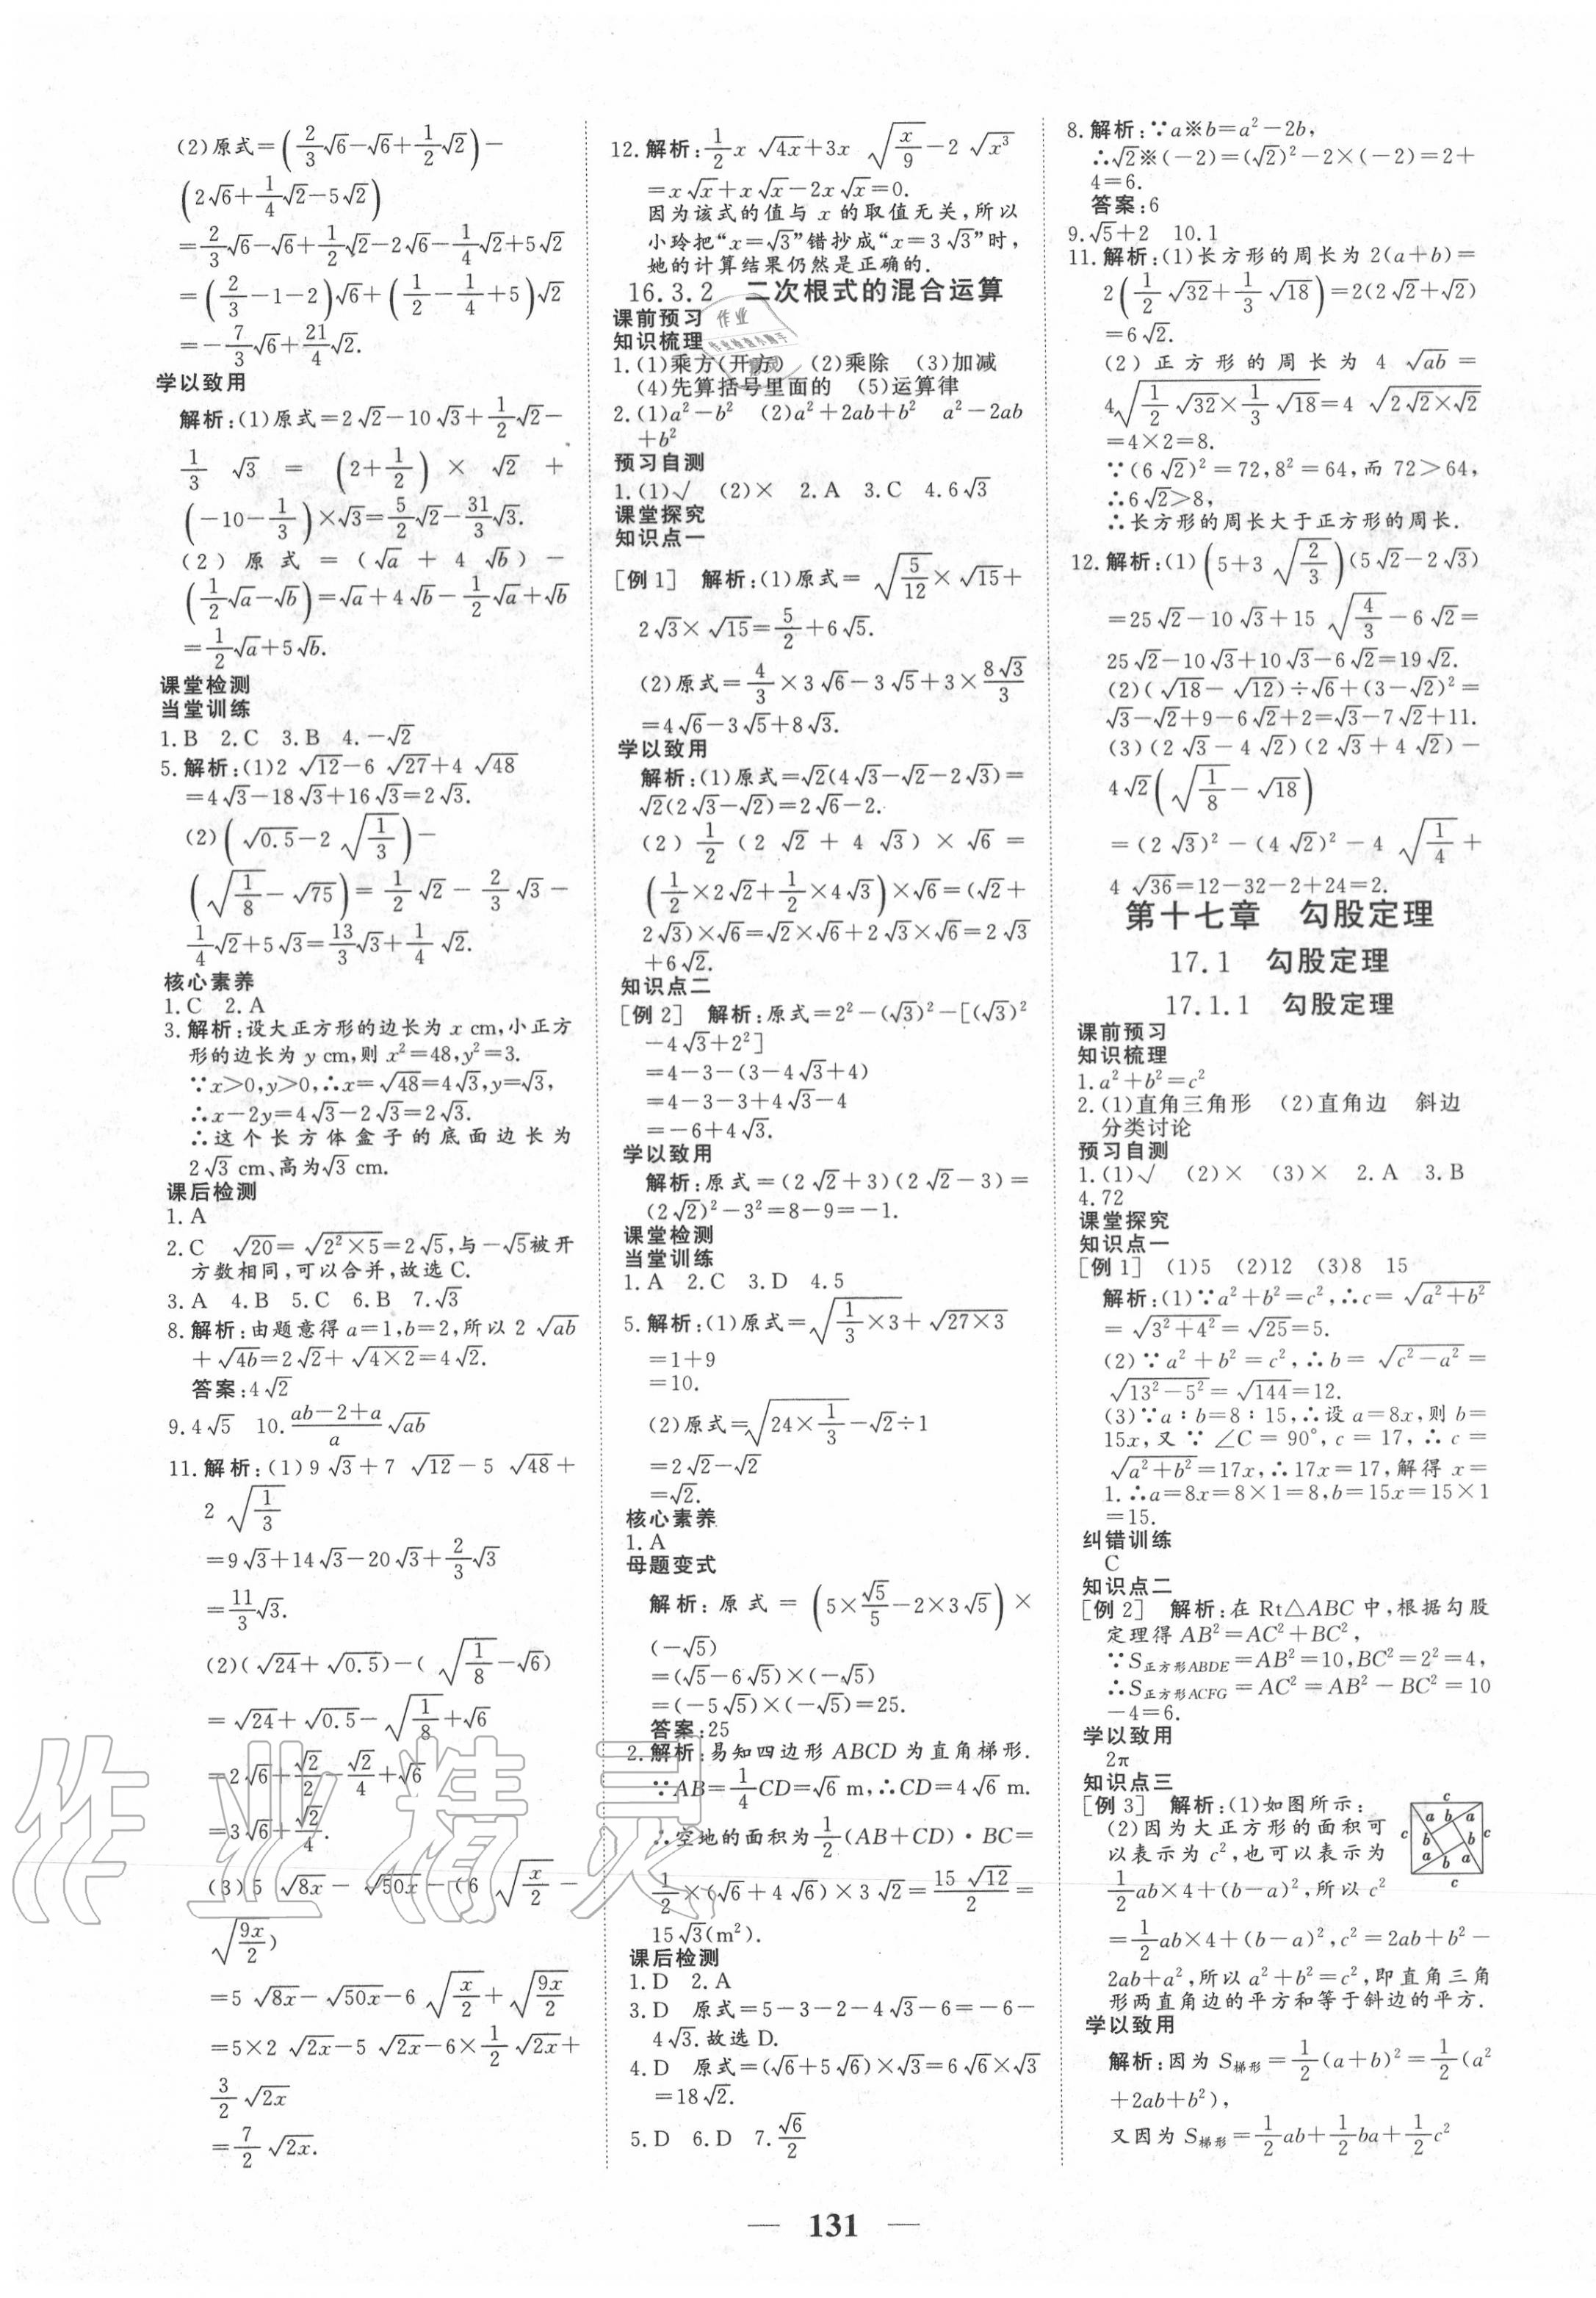 (2)原式=(2/3√6-√6+1/2√2)-
(2√6+1/4√2-5√2)
=2/3√6-√6+1/2√2-2√6-1/4√2+5√2
=(2/3-1-2)√6+(1/2-1/4+5)√2
=-7/3√6+21/4√2.
学以致用
解析:(1)原式=2√2-10√3+1/2√2-
1/3 √3 = (2+1/2) × √2 +
(-10-1/3)×√3=5/2√2-31/3√3.
(2)原式=(√a+4√b)-
(1/2√a-√b)=√a+4√b-1/2√a+√b
=1/2√a+5√b.
课堂检测
当堂训练
1.B 2.C 3.B 4.-√2
5.解析:(1)2√12-6√27+4√48
=4√3-18√3+16√3=2√3.
(2)(√0.5-2√(1/3))-
(√(1/8)-√75)=1/2√2-2/3√3-
1/4√2+5√3=13/3√3+1/4√2.
核心素养
1.C 2.A
3.解析:设大正方形的边长为x cm,小正方
形的边长为y cm,则x²=48,y²=3.
∵x>0,y>0,∴x=√48=4√3,y=√3,
∴x-2y=4√3-2√3=2√3.
∴这个长方体盒子的底面边长为
2√3 cm、高为√3 cm.
课后检测
1.A
2.C √20=√(2²×5)=2√5,与-√5被开
方数相同,可以合并,故选C.
3.A 4.B 5.C 6.B 7.√3
8.解析:由题意得a=1,b=2,所以2√ab
+√4b=2√2+√(4×2)=4√2.
答案:4√2
9.4√5 10.(ab-2+a)/a √ab
11.解析:(1)9√3+7√12-5√48+
2√(1/3)
=9√3+14√3-20√3+2/3√3
=11/3√3.
(2)(√24+√0.5)-(√(1/8)-√6)
=√24+√0.5-√(1/8)+√6
=2√6+√2/2-√2/4+√6
=3√6+√2/4.
(3)5√8x-√50x-(6√(x/2)-
√(9x/2))
=5√8x-√50x-6√(x/2)+√(9x/2)
=5×2√2x-5√2x-6×1/2√2x+
3/2√2x
=7/2√2x.
12.解析:1/2x√4x+3x√(x/9)-2√x³
=x√x+x√x-2x√x=0.
因为该式的值与x的取值无关,所以
小玲把“x=√3”错抄成“x=3√3”时,
她的计算结果仍然是正确的.
16.3.2 二次根式的混合运算
课前预习
知识梳理
1.(1)乘方(开方) (2)乘除 (3)加减
(4)先算括号里面的 (5)运算律
2.(1)a²-b² (2)a²+2ab+b² a²-2ab
+b²
预习自测
1.(1)√ (2)× 2.A 3.C 4.6√3
课堂探究
知识点一
[例1] 解析:(1)原式=√(5/12)×√15+
2√3×√15=5/2+6√5.
(2)原式=4/3×3√6-3√5+3×8√3/3
=4√6-3√5+8√3.
学以致用
解析:(1)原式=√2(4√3-√2-2√3)=
√2(2√3-√2)=2√6-2.
(2)1/2(2√2+4√3)×√6=
(1/2×2√2+1/2×4√3)×√6=(√2+
2√3)×√6=√2×√6+2√3×√6=2√3
+6√2.
知识点二
[例2] 解析:原式=2²-(√3)²-[(√3)²
-4√3+2²]
=4-3-(3-4√3+4)
=4-3-3+4√3-4
=-6+4√3.
学以致用
解析:原式=(2√2+3)(2√2-3)=
(2√2)²-3²=8-9=-1.
课堂检测
当堂训练
1.A 2.C 3.D 4.5
5.解析:(1)原式=√(1/3×3)+√(27×3)
=1+9
=10.
(2)原式=√(24×1/3)-√2÷1
=2√2-√2
=√2.
核心素养
1.A
母题变式
解析:原式=(5×√5/5-2×3√5)×
(-√5)
=(√5-6√5)×(-√5)
=(-5√5)×(-√5)=25.
答案:25
2.解析:易知四边形ABCD为直角梯形.
∵AB=1/4CD=√6 m,∴CD=4√6 m.
∴空地的面积为1/2(AB+CD)·BC=
1/2×(√6+4√6)×3√2=15√12/2=
15√3(m²).
课后检测
1.D 2.A
3.D 原式=5-3-2-4√3-6=-6-
4√3.故选D.
4.D 原式=(√6+5√6)×√3=6√6×√3
=18√2.
5.D 6.D 7.√6/2
8.解析:∵a※b=a²-2b,
∴√2※(-2)=(√2)²-2×(-2)=2+
4=6.
答案:6
9.√5+2 10.1
11.解析:(1)长方形的周长为2(a+b)=
2(1/2√32+1/3√18)=2(2√2+√2)
=6√2.
(2)正方形的周长为4√ab=
4√(1/2√32×1/3√18)=4√(2√2×√2)
=4×2=8.
∵(6√2)²=72,8²=64,而72>64,
∴6√2>8,
∴长方形的周长大于正方形的周长.
12.解析:(1)(5+3√(2/3))(5√2-2√3)
=25√2-10√3+15√(4/3)-6√2=
25√2-10√3+10√3-6√2=19√2.
(2)(√18-√12)÷√6+(3-√2)²=
√3-√2+9-6√2+2=√3-7√2+11.
(3)(2√3-4√2)(2√3+4√2)-
4√2(√(1/8)-√18)
=(2√3)²-(4√2)²-4√(1/4)+
4√36=12-32-2+24=2.
第十七章 勾股定理
17.1 勾股定理
17.1.1 勾股定理
课前预习
知识梳理
1.a²+b²=c²
2.(1)直角三角形 (2)直角边 斜边
分类讨论
预习自测
1.(1)√ (2)× (3)× 2.A 3.B
4.72
课堂探究
知识点一
[例1] (1)5 (2)12 (3)8 15
解析:(1)∵a²+b²=c²,∴c=√(a²+b²)
=√(3²+4²)=√25=5.
(2)∵a²+b²=c²,∴b=√(c²-a²)=
√(13²-5²)=√144=12.
(3)∵a∶b=8∶15,∴设a=8x,则b=
15x,又∵∠C=90°,c=17,∴c=
√(a²+b²)=17x,∴17x=17,解得x=
1.∴a=8x=8×1=8,b=15x=15×1
=15.
纠错训练
C
知识点二
[例2] 解析:在Rt△ABC中,根据勾股
定理得AB²=AC²+BC²,
∵S正方形ABDE=AB²=10,BC²=2²=4,
∴S正方形ACFG=AC²=AB²-BC²=10
-4=6.
学以致用
2π
知识点三
[例3] 解析:(1)如图所示:
(2)因为大正方形的面积可
以表示为c²,也可以表示为
1/2ab×4+(b-a)²,所以c²
=1/2ab×4+(b-a)²,c²=2ab+b²-
2ab+a²,所以a²+b²=c²,即直角三角
形两直角边的平方和等于斜边的平方.
c
a b a
c b b c
a b a
c
学以致用
解析:因为S梯形=1/2(a+b)²=1/2(a²
+2ab+b²),
又因为S梯形=1/2ab+1/2ba+1/2c²
— 131 —
作业精灵